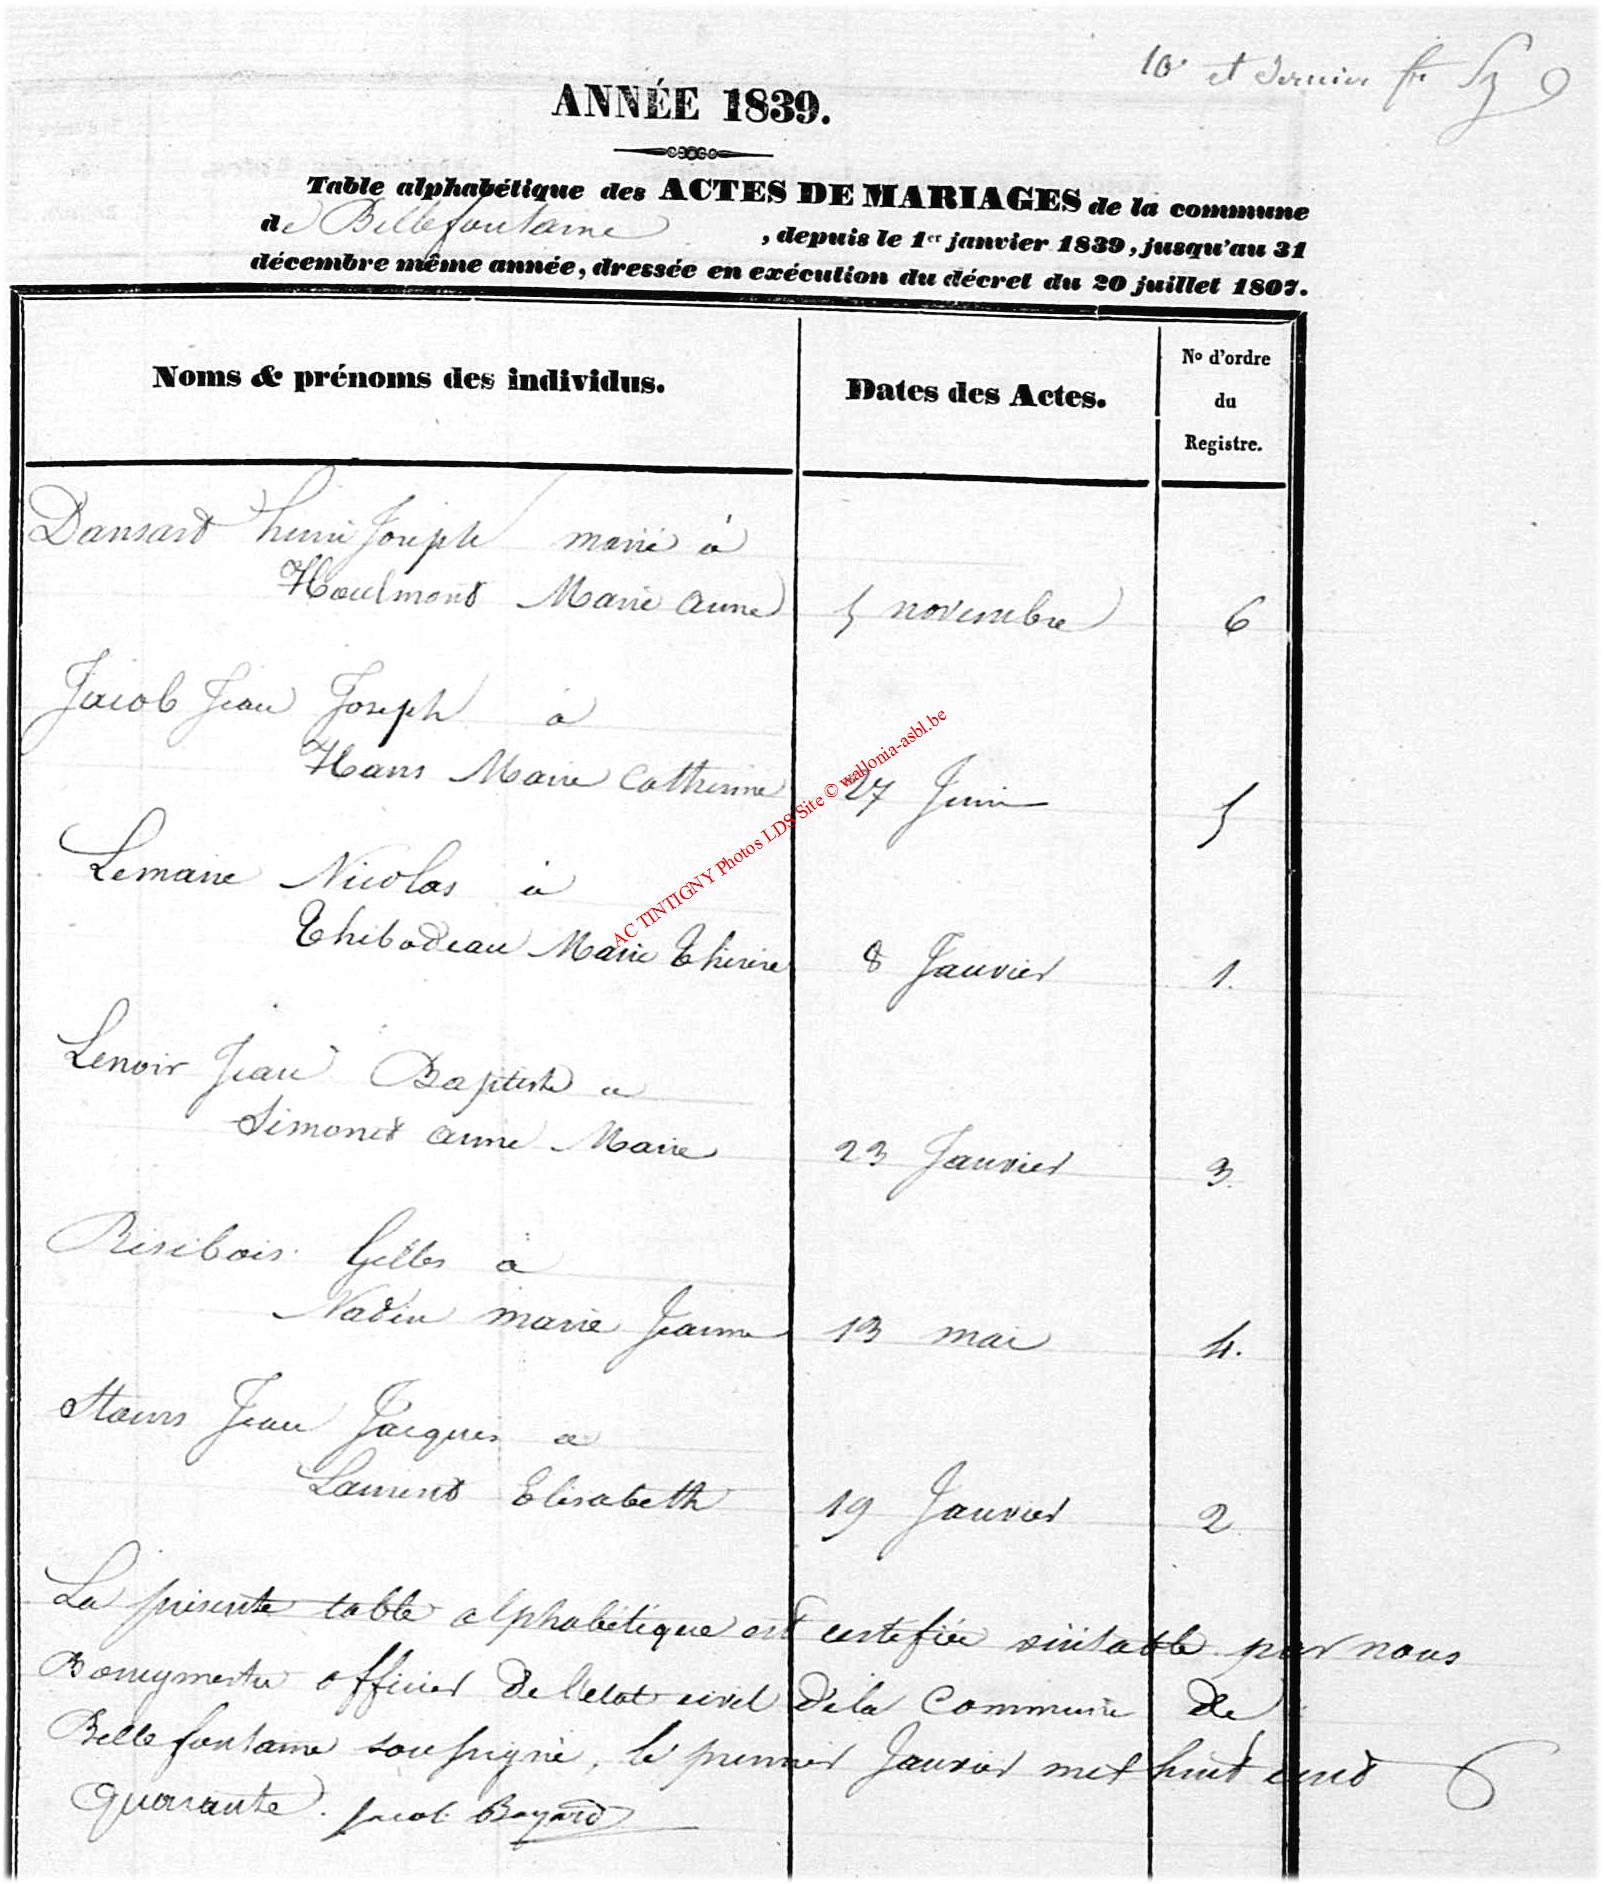 10e et dernier
ANNÉE 1839.
Table alphabétique des ACTES DE MARIAGES de la commune
de Bellefontaine , depuis le 1er janvier 1839, jusqu'au 31
décembre même année, dressée en exécution du décret du 20 juillet 1807.
Noms & prénoms des individus. Dates des Actes. No d'ordre
du
Registre.
Dansart henri Joseph marié à
Houlmont Marie anne 5 novembre 6
Jacob Jean Joseph à
Hans Marie Catherine 27 Juin 5
Lemaire Nicolas à
Thibodeau Marie Thérèse 8 Janvier 1.
Lenoir Jean Baptiste a
Simonet anne Marie 23 Janvier 3.
Risibois Gilles à
Nadin marie Jeanne 13 mai 4.
Jean Jacques a
Laurent Elisabeth 19 Janvier 2
La présente table alphabétique est certifiée véritable par nous
Bourgmestre officier de l'etat civil de la Commune de
Bellefontaine soussigné, le premier Janvier mil huit cent
quarante. Jacob Bayard
AC TINTIGNY Photos LDS Site © wallonia-asbl.be